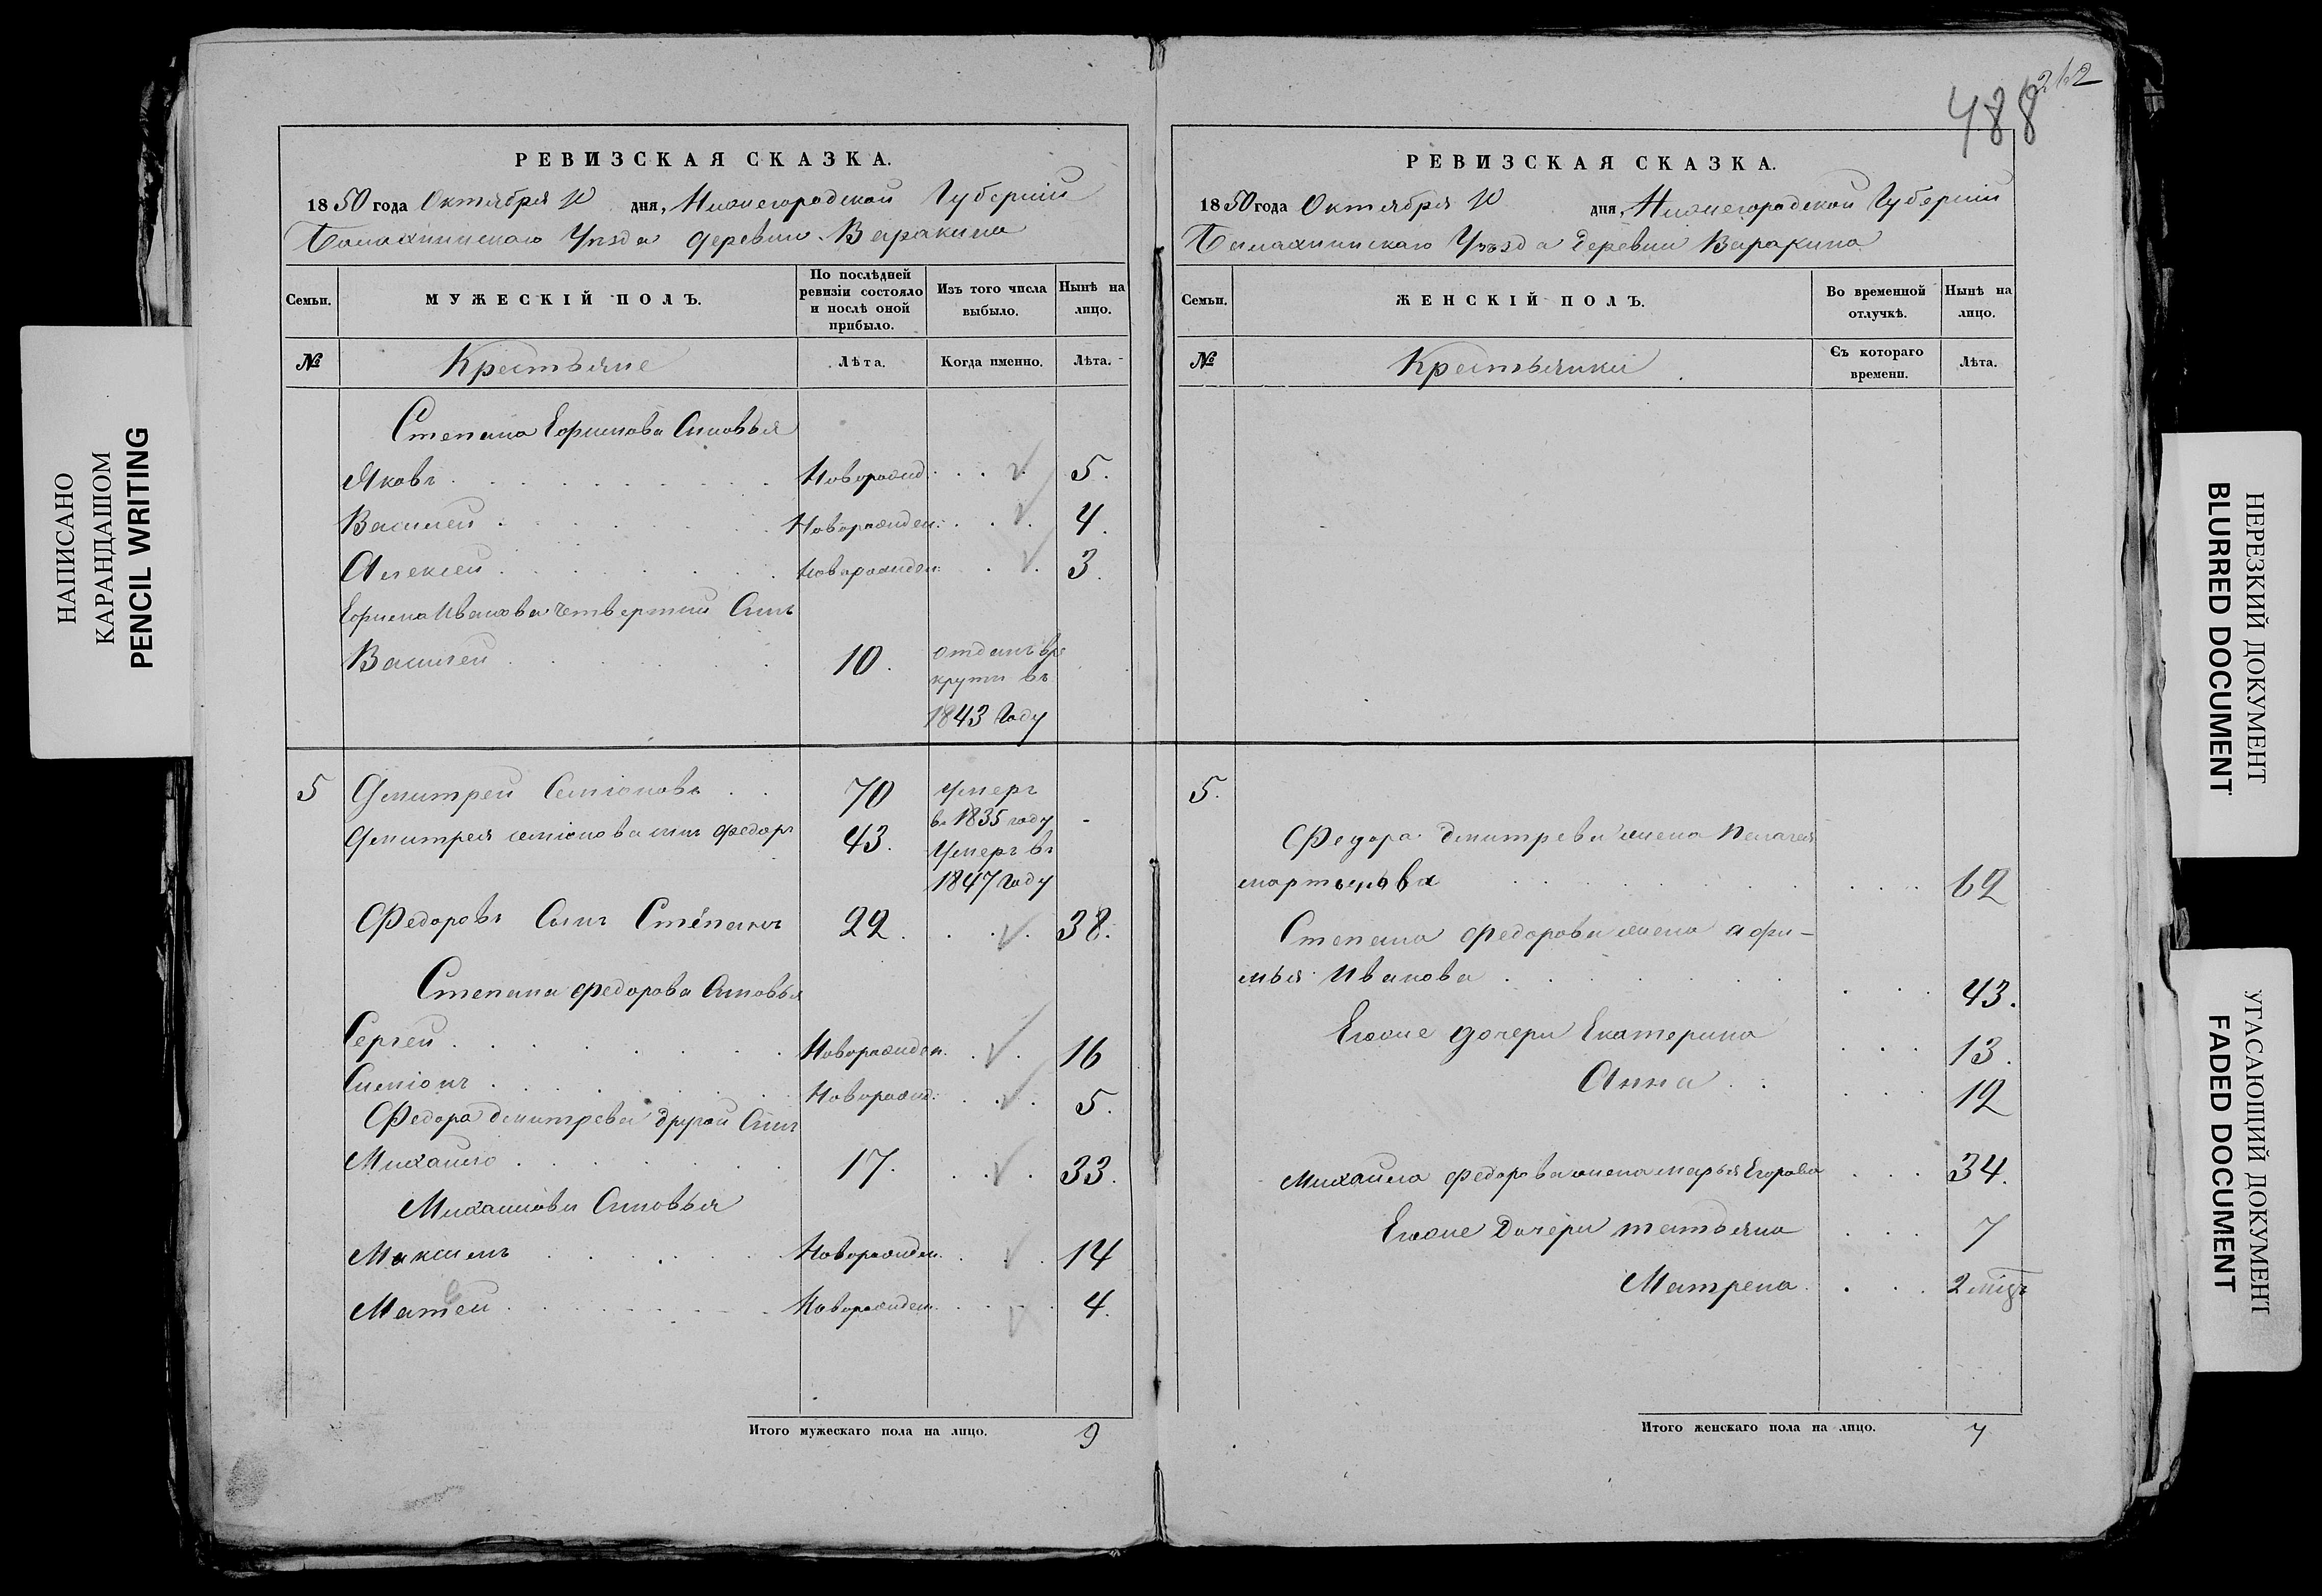 НАПИСАНО
КАРАНДАШОМ
PENCIL WRITING
РЕВИЗСКАЯ СКАЗКА.
1850 года Октября 10 дня, Нижегородской Губерніи
Балахнинскаго Уѣзда деревни Варакина
Семьи.
МУЖЕСКІЙ ПОЛЪ.
По послѣдней
ревизіи состояло
и послѣ оной
прибыло.
Изъ того числа
выбыло.
Нынѣ на
лицо.
№ Крестьяне Лѣта. Когда именно. Лѣта.
Степана Ефимова Сыновья
Яковъ Новорожд. 5.
Василей Новорожден: 4.
Алексей Новорожден: 3.
Ефима Иванова Четвертый Сынъ
Василей 10. отданъ вре
крути въ
1843 Году
5 Дмитрей Семіоновъ 70 Умеръ
въ 1835 году
Дмитрея семіонова сынъ Федоръ 43. Умеръ въ
1847 Году
Федоровъ Сынъ Степанъ 22. 38.
Степана Федорова Сыновья
Сергей Новорожден. 16
Симіонъ Новорожд: 5.
Федора дмитрева другой Сынъ
Михайло 17. 33.
Михайлова Сыновья
Максимъ Новорожден. 14
Матей Новорожден. 4.
Итого мужескаго пола на лицо. 9
488
212
РЕВИЗСКАЯ СКАЗКА.
1850 года Октября 10 дня, Нижегородской Губерніи
Балахнинскаго Уѣзда деревни Варакина
Семьи.
ЖЕНСКІЙ ПОЛЪ.
Во временной
отлучкѣ.
Нынѣ на
лицо.
№ Крестьянки Съ котораго
времени. Лѣта.
5.
Федора дмитрева жена Пелагея
мартынова 62
Степана Федорова жена афи-
мья Иванова 43.
Ево же дочери Екатерина 13.
Анна 12
Михайла Федорова жена марья Егорова 34.
Ево же Дочери татьяна 7
Матрена 2 міцъ
Итого женскаго пола на лицо. 7
НЕРЕЗКИЙ ДОКУМЕНТ
BLURRED DOCUMENT
УГАСАЮЩИЙ ДОКУМЕНТ
FADED DOCUMENT